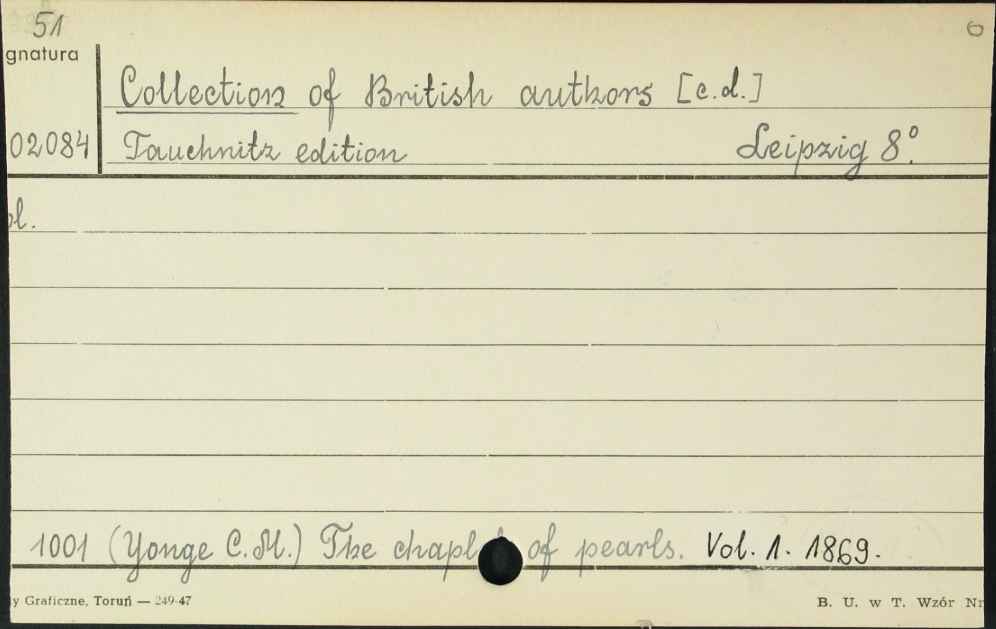 51
6
gnatura
Collection of British authors [c.d.]
02084 Tauchnitz edition Leipzig 8°.
ol.
1001 (Yonge C.M.) The chapl of pearls. Vol. 1. 1869.
y Graficzne, Toruń — 249-47 B. U. w T. Wzór Nr